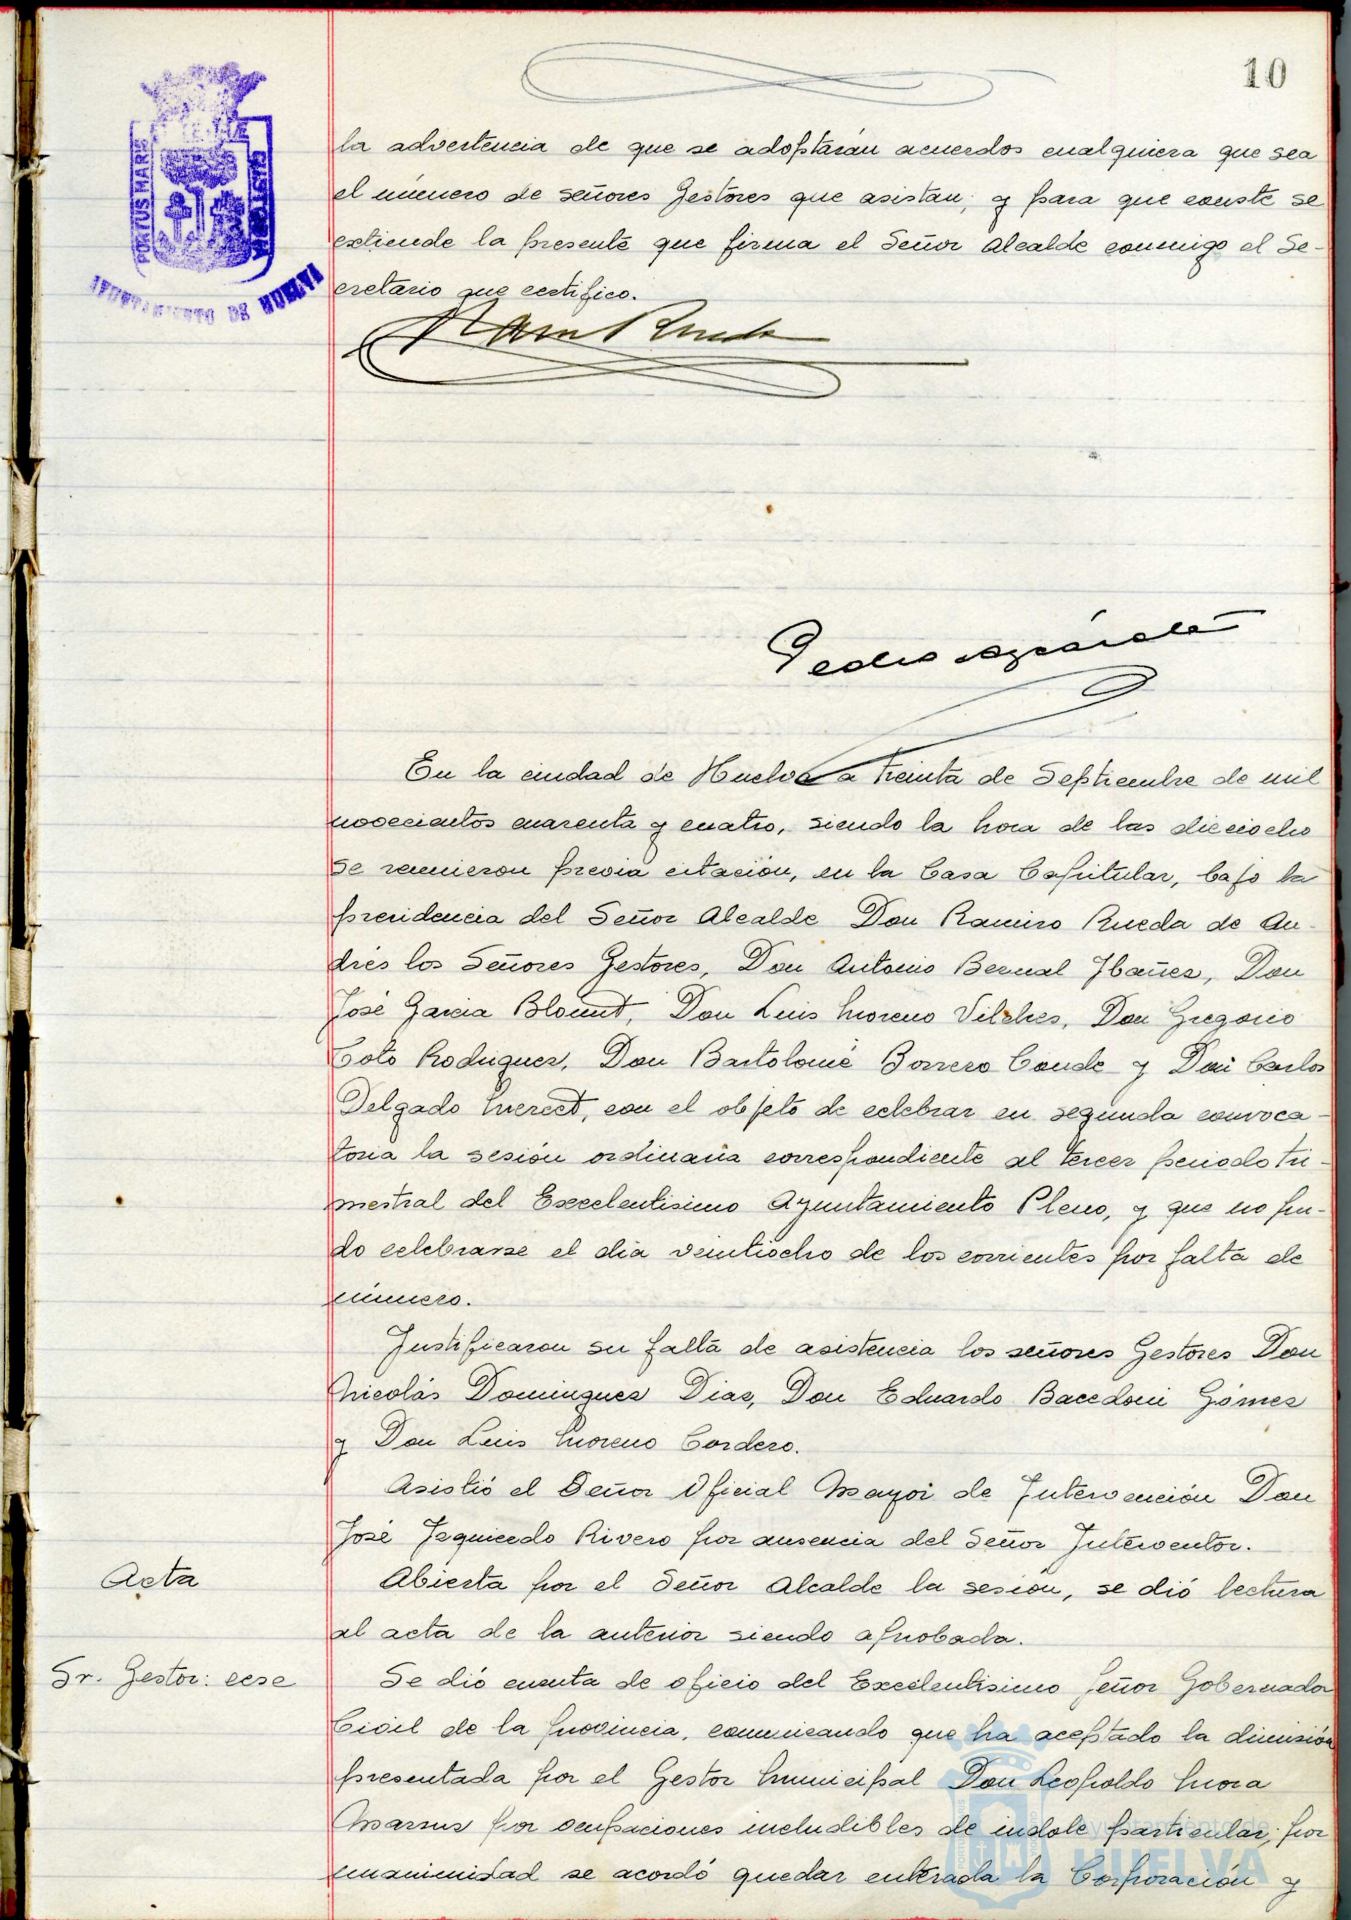 10
PORTUS MARIS
ET TERRAE
CUSTODIA
AYUNTAMIENTO DE HUELVA
la advertencia de que se adoptarán acuerdos cualquiera que sea
el número de señores Gestores que asistan; y para que conste se
extiende la presente que firma el Señor Alcalde conmigo el Se-
cretario que certifico.
Ram Rueda
Pedro
En la ciudad de Huelva a treinta de Septiembre de mil
novecientos cuarenta y cuatro, siendo la hora de las dieciocho
se reunieron previa citación, en la Casa Capitular, bajo la
presidencia del Señor Alcalde Don Ramiro Rueda de An-
drés los Señores Gestores, Don Antonio Bernal Ybañez, Don
José Garcia Blount, Don Luis Moreno Vilches, Don Gregorio
Coto Rodriguez, Don Bartolomé Borrero Conde y Don Carlos
Delgado, con el objeto de celebrar en segunda convoca-
toria la sesión ordinaria correspondiente al tercer periodo tri-
mestral del Excelentisimo Ayuntamiento Pleno, y que no pu-
do celebrarse el dia veintiocho de los corrientes por falta de
número.
Justificaron su falta de asistencia los señores Gestores Don
Nicolás Dominguez Diaz, Don Eduardo Bacedoni Gómez
y Don Luis Moreno Cordero.
Asistió el Señor Oficial Mayor de Intervención Don
José Izquierdo Rivero por ausencia del Señor Interventor.
Acta
Abierta por el Señor Alcalde la sesión, se dió lectura
al acta de la anterior siendo aprobada.
Sr. Gestor: cese
Se dió cuenta de oficio del Excelentisimo Señor Gobernador
Civil de la provincia, comunicando que ha aceptado la dimisión
presentada por el Gestor Municipal Don Leopoldo Mora
por ocupaciones ineludibles de indole particular; por
unanimidad se acordó quedar enterada la Corporación y
Ayuntamiento de
HUELVA